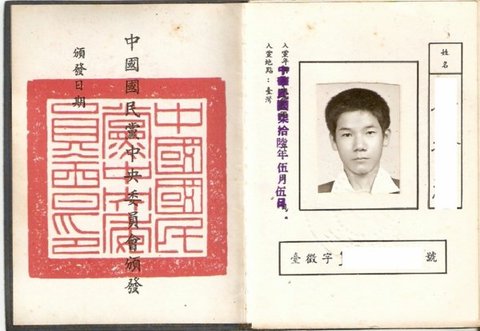 姓名
入黨年
中華民國柒拾陸年伍月伍日
入黨地點：臺灣
臺徵字 號
中國國民黨中央委員會頒發
頒發日期
中國國民
黨中央委
員會印